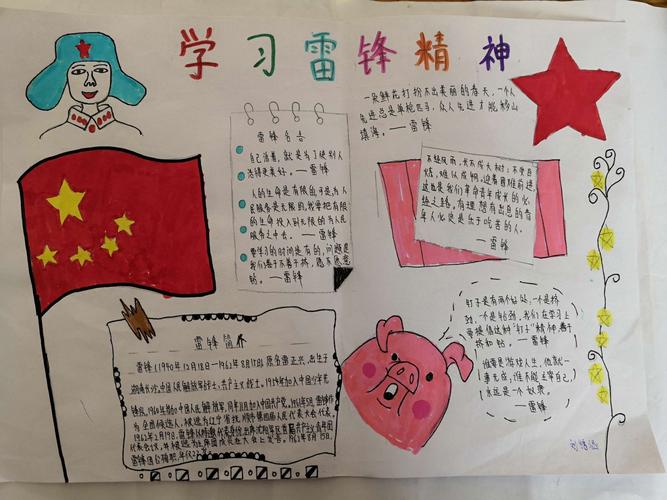 学习雷锋精神
一朵鲜花打扮不出美丽的春天,一个人
先进总是单枪匹马,众人先进才能移山
填海。——雷锋
雷锋名言
自己活着,就是为了使别人
活得更美好。——雷锋
人的生命是有限的,可是为人
民服务是无限的,我要把有限
的生命投入到无限的为人民
服务之中去。——雷锋
要学习的时间是有的,问题是
我们善于不善于挤,愿不愿意
钻。——雷锋
不经风雨,长不成大树;不受百
炼,难以成钢。迎着困难前进,
这也是我们革命青年成长的必
经之路。有理想有出息的青
年人必定是乐于吃苦的人。
——雷锋
钉子是有两个好处,一个是挤
劲,一个是钻劲,我们在学习上
要提倡这种"钉子"精神,善于
挤和钻。——雷锋
谁要是游戏人生,他就一
事无成,谁不能主宰自己,
永远是一个奴隶。
——雷锋
雷锋简介
雷锋(1940年12月18日—1962年8月15日),原名雷正兴,出生于
湖南长沙,中国人民解放军战士,共产主义战士。1954年加入中国少年先
锋队,1960年参加中国人民解放军,同年11月加入中国共产党。
1962年8月15日,
雷锋因公殉职,年仅22岁